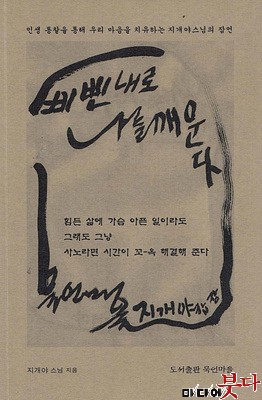 인생 통찰을 통해 우리 마음을 치유하는 지개야스님의 잠언
삐삔내로
나를깨운
다
힘든 삶에 가슴 아픈 일이라도
그래도 그냥
사노라면 시간이 꼬-옥 해결해 준다
묵언마을 지개야
지개야 스님 지음
도서출판 묵언마을
미디어
붓다